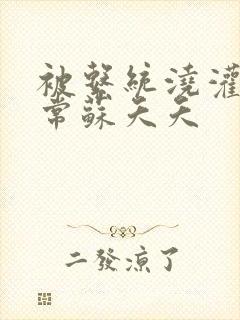 被繫統澆灌
常蘇天天
二發涼了